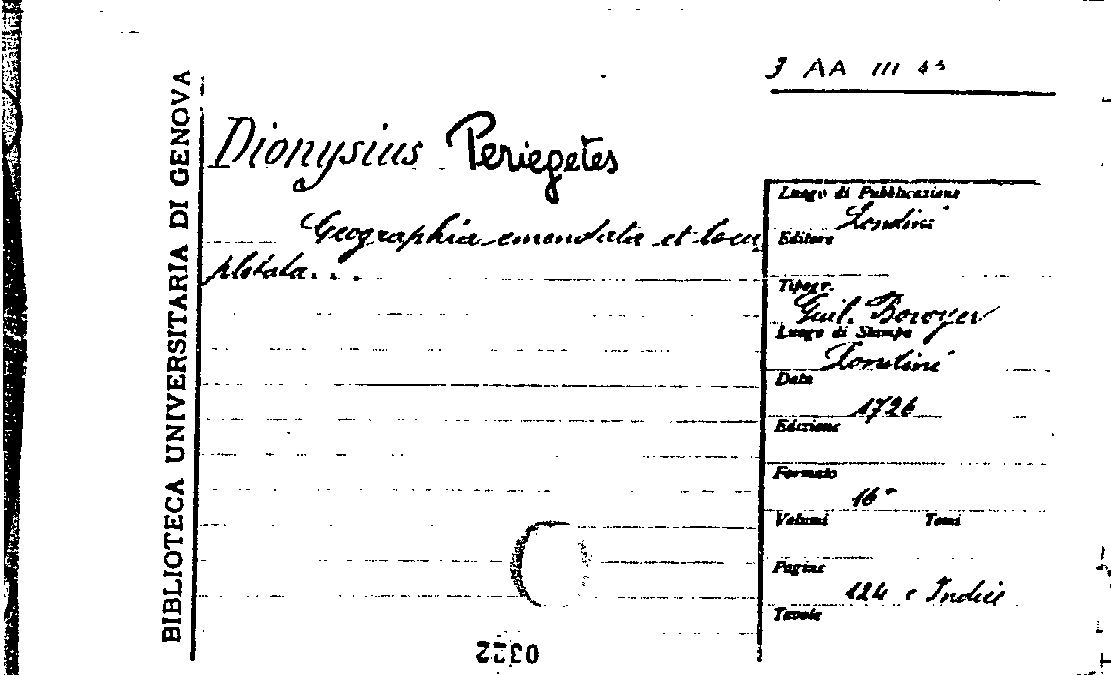 3 AA III 43
BIBLIOTECA UNIVERSITARIA DI GENOVA
Dionysius Periegetes
Geographia emendata et locu
pletata...
Luogo di Pubblicazione
Londini
Editore
Tipogr.
Guil. Bowyer
Luogo di Stampa
Londini
Data
1726
Edizione
Formato
16°
Volumi Tomi
Pagine
124 e Indici
Tavole
0322